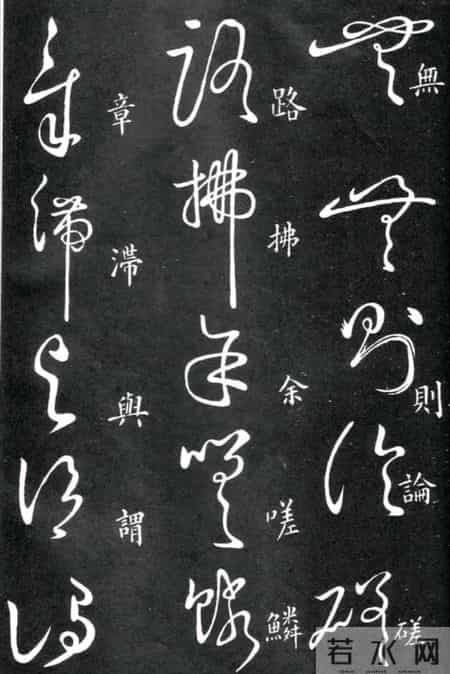 無則論磋
路拂余嗟鱗
章滯與謂
若水网